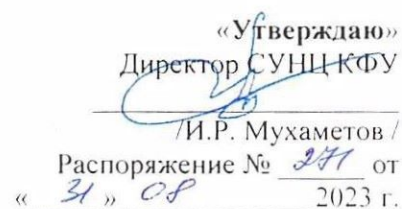 «Утверждаю»
Директор СУНЦ КФУ
/И.Р. Мухаметов /
Распоряжение № 271 от
« 31 » 08 2023 г.